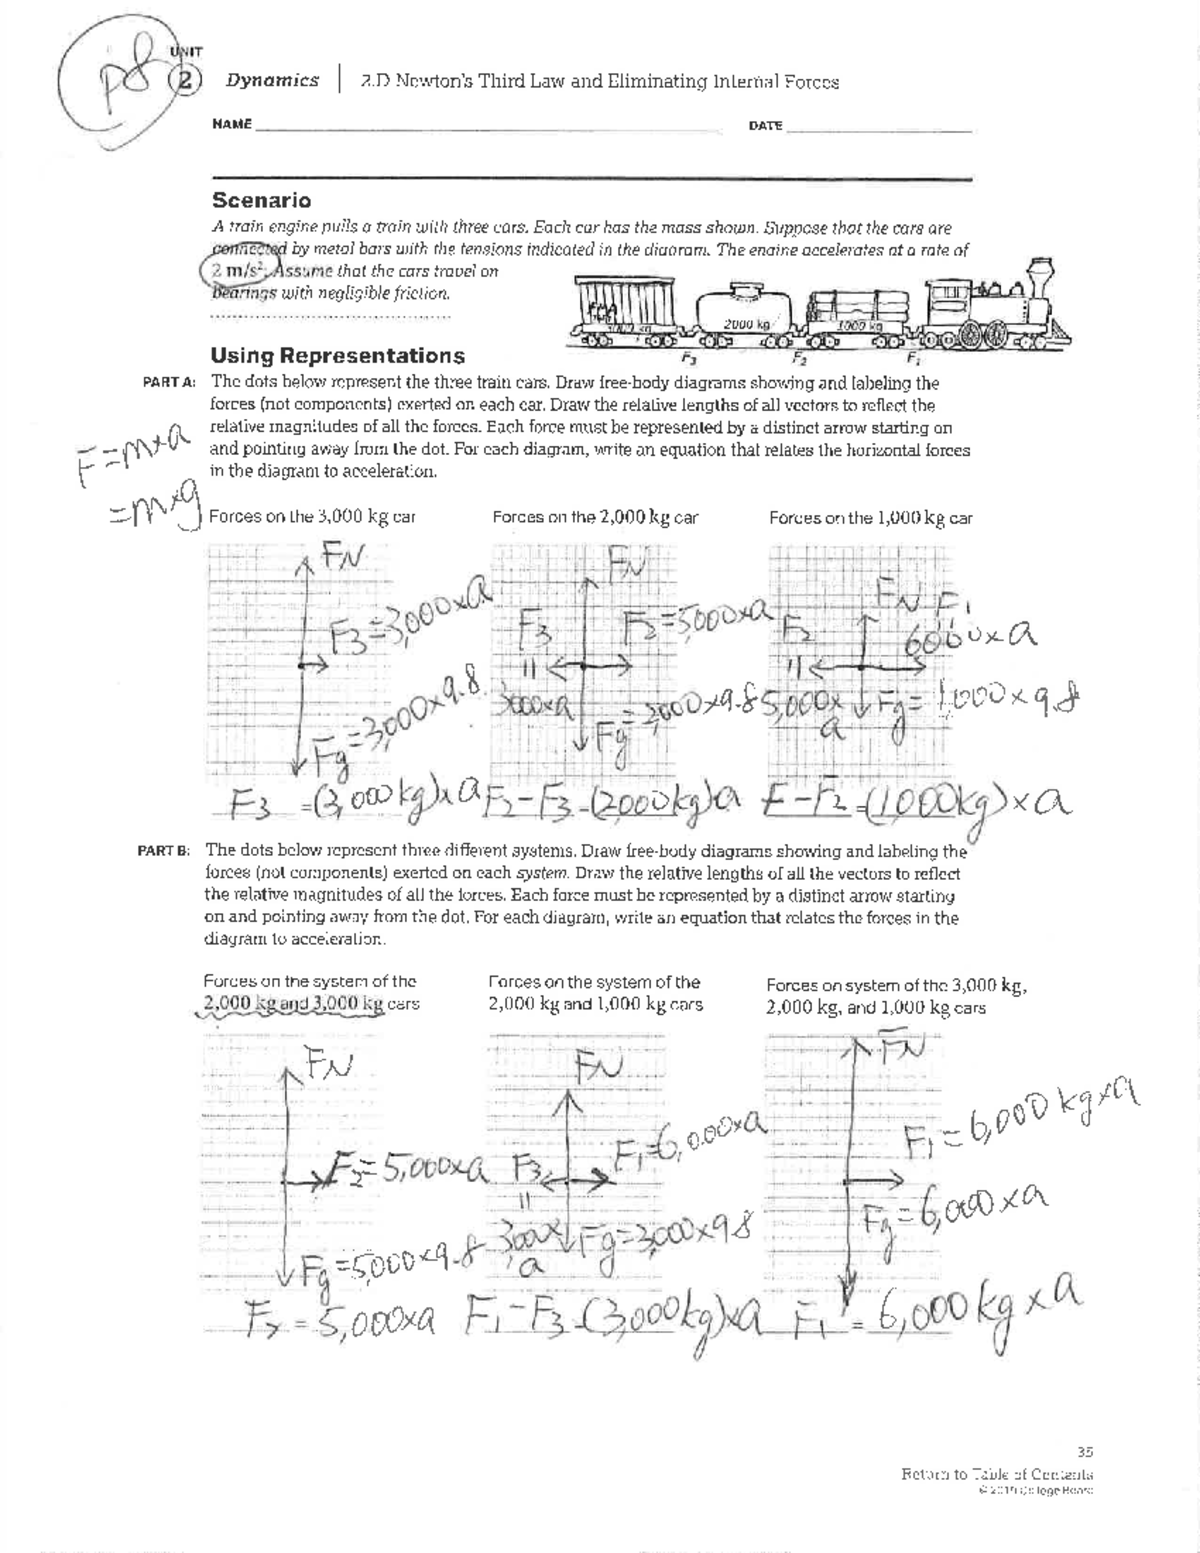 p8
UNIT
2 Dynamics | 2.D Newton's Third Law and Eliminating Internal Forces
NAME
DATE
Scenario
A train engine pulls a train with three cars. Each car has the mass shown. Suppose that the cars are
connected by metal bars with the tensions indicated in the diagram. The engine accelerates at a rate of
2 m/s². Assume that the cars travel on
bearings with negligible friction.
2000 kg
1000 kg
F3 F2 F1
Using Representations
PART A: The dots below represent the three train cars. Draw free-body diagrams showing and labeling the
forces (not components) exerted on each car. Draw the relative lengths of all vectors to reflect the
relative magnitudes of all the forces. Each force must be represented by a distinct arrow starting on
and pointing away from the dot. For each diagram, write an equation that relates the horizontal forces
in the diagram to acceleration.
F=m×a
=m×g
Forces on the 3,000 kg car
Forces on the 2,000 kg car
Forces on the 1,000 kg car
FN
F3=3,000×a
Fg=3,000×9.8
F3 =(3,000kg)×a
FN
F3
=
3000×a
F2=5,000×a
Fg=2,000×9.8
F2-F3=(2,000kg)a
FN
F1
=
6000×a
F2
=
5,000×
a
Fg=1,000×9.8
F-F2=(1,000kg)×a
PART B: The dots below represent three different systems. Draw free-body diagrams showing and labeling the
forces (not components) exerted on each system. Draw the relative lengths of all the vectors to reflect
the relative magnitudes of all the forces. Each force must be represented by a distinct arrow starting
on and pointing away from the dot. For each diagram, write an equation that relates the forces in the
diagram to acceleration.
Forces on the system of the
2,000 kg and 3,000 kg cars
Forces on the system of the
2,000 kg and 1,000 kg cars
Forces on system of the 3,000 kg,
2,000 kg, and 1,000 kg cars
FN
F2=5,000×a
Fg=5,000×9.8
F2=5,000×a
FN
F1=6,000×a
F3
=
3,000×
a
Fg=3,000×9.8
F1-F3=(3,000kg)×a
FN
F1=6,000 kg×a
Fg=6,000×a
F1=6,000kg×a
35
Return to Table of Contents
© 2019 College Board